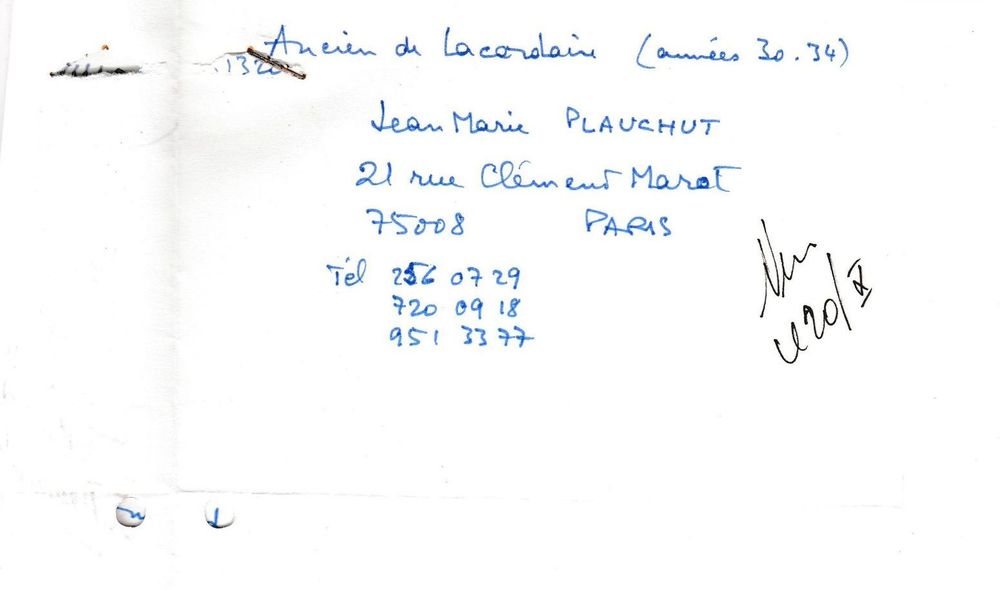 Ancien de Lacordaire (années 30.34)
Jean Marie PLAUCHUT
21 rue Clément Marot
75008 PARIS
Tél 256 07 29
720 09 18
951 33 77
Vu
le 20/X